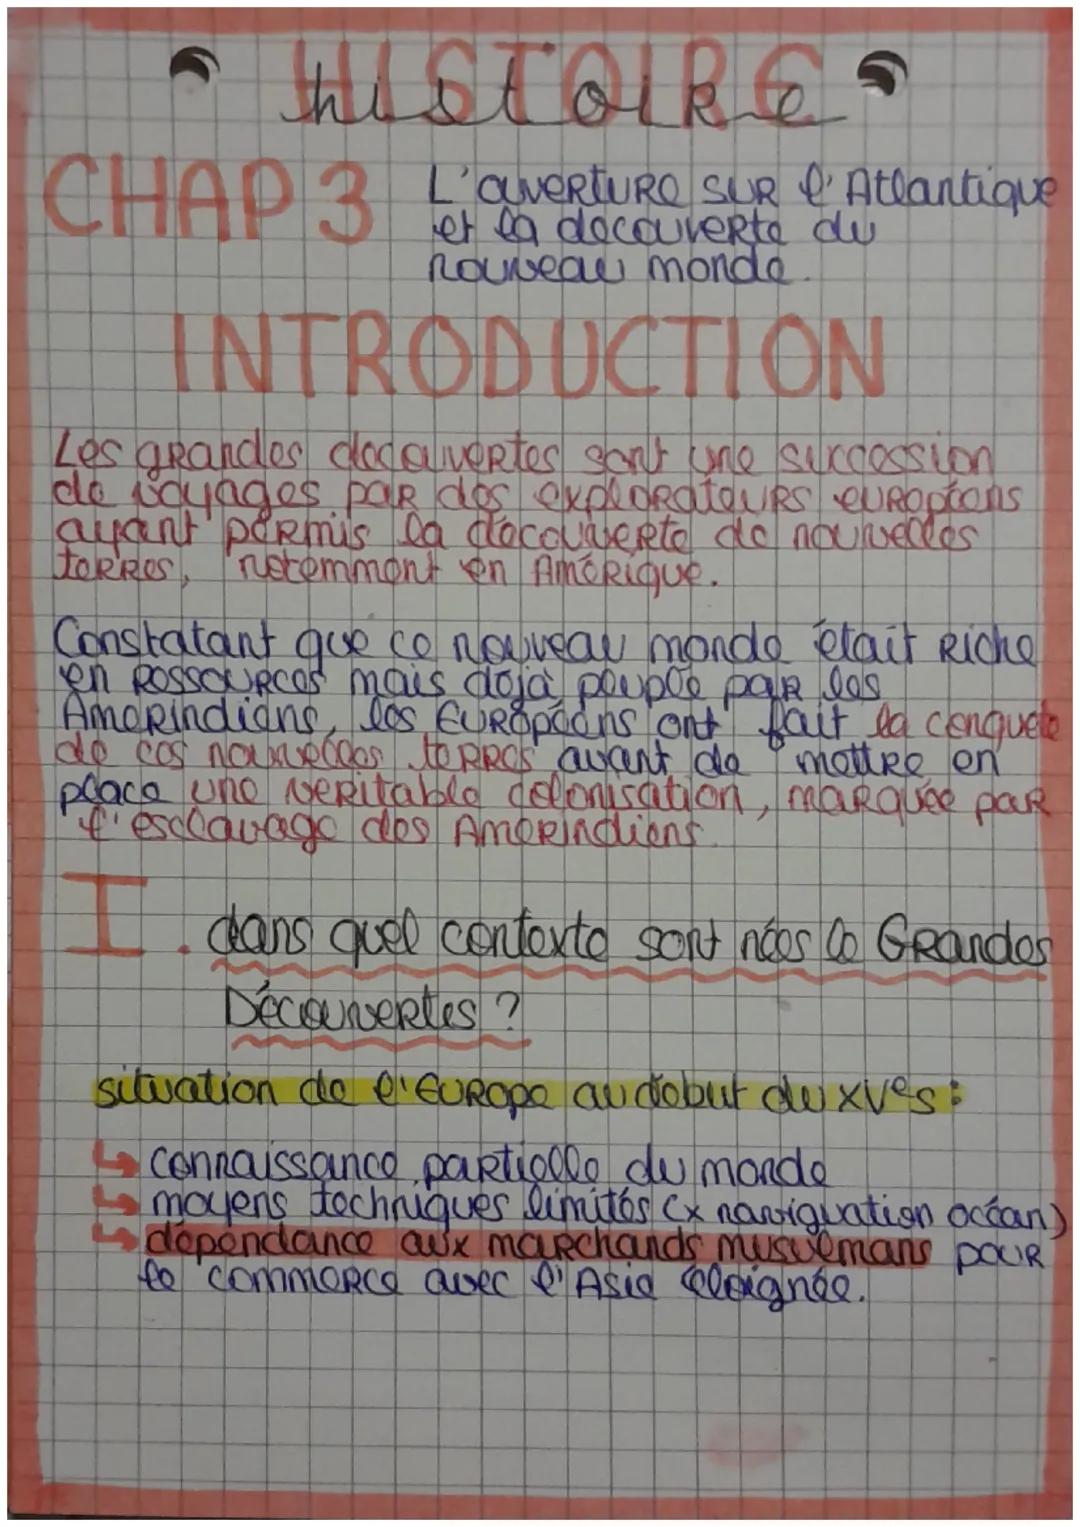 HISTOIRE
histoire
CHAP 3
L'ouverture sur l'Atlantique
et la découverte du
nouveau monde.
INTRODUCTION
Les grandes découvertes sont une succession
de voyages par des explorateurs européens
ayant permis la découverte de nouvelles
terres, notemment en Amérique.
Constatant que ce nouveau monde était riche
en ressources mais déjà peuplé par les
Amerindiens, les Européens ont fait la conquete
de ces nouvelles terres avant de mettre en
place une veritable colonisation, marquée par
l'esclavage des Amerindiens.
I. dans quel contexte sont nées le Grandes
Découvertes ?
situation de l'Europe au debut du XVes :
↳ connaissance partielle du monde
↳ moyens techniques limités (x naviguation océan)
↳ dépendance aux marchands musulmans pour
le commerce avec l'Asie éloignée.